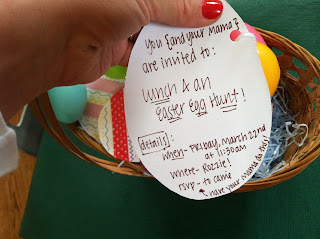 you {and your Mama}
are invited to:
Lunch & an
Easter Egg Hunt!
[details]:
when- Friday, March 22nd
at 11:30am
where- Rozzie!
rsvp- to Camie
have your mama do this!